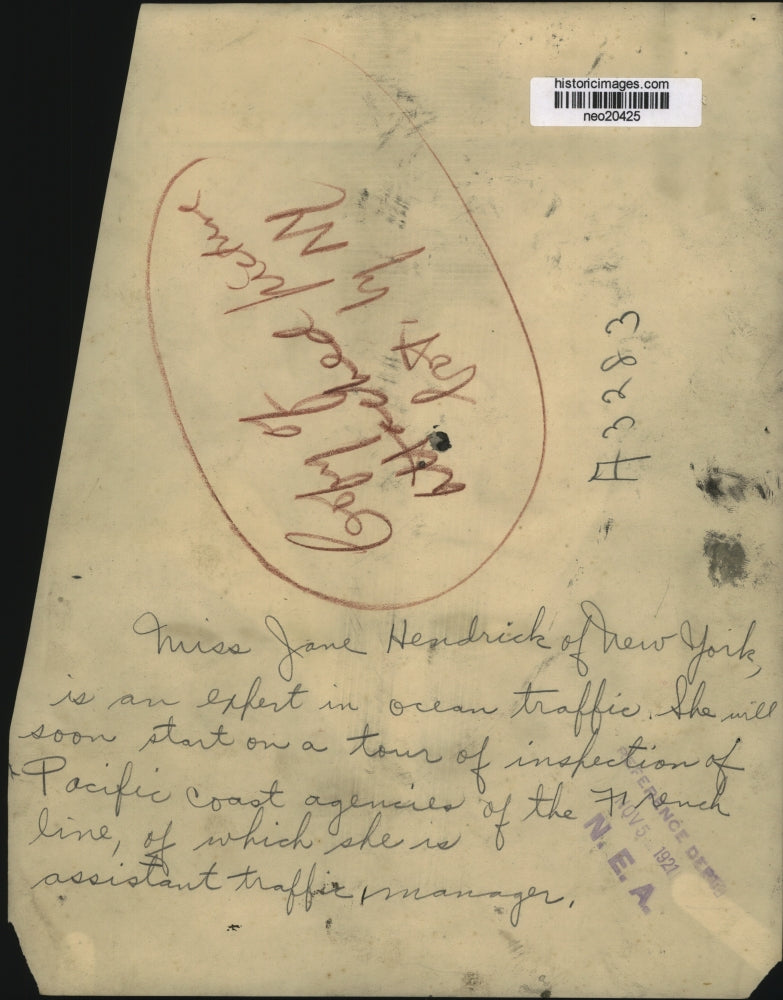 historicimages.com
neo20425
picture
A3283
Miss Jane Hendrick of New York,
is an expert in ocean traffic. She will
soon start on a tour of inspection of
Pacific coast agencies of the French
line, of which she is
assistant traffic manager.
REFERENCE DEPT.
NOV 5 1921
N. E. A.